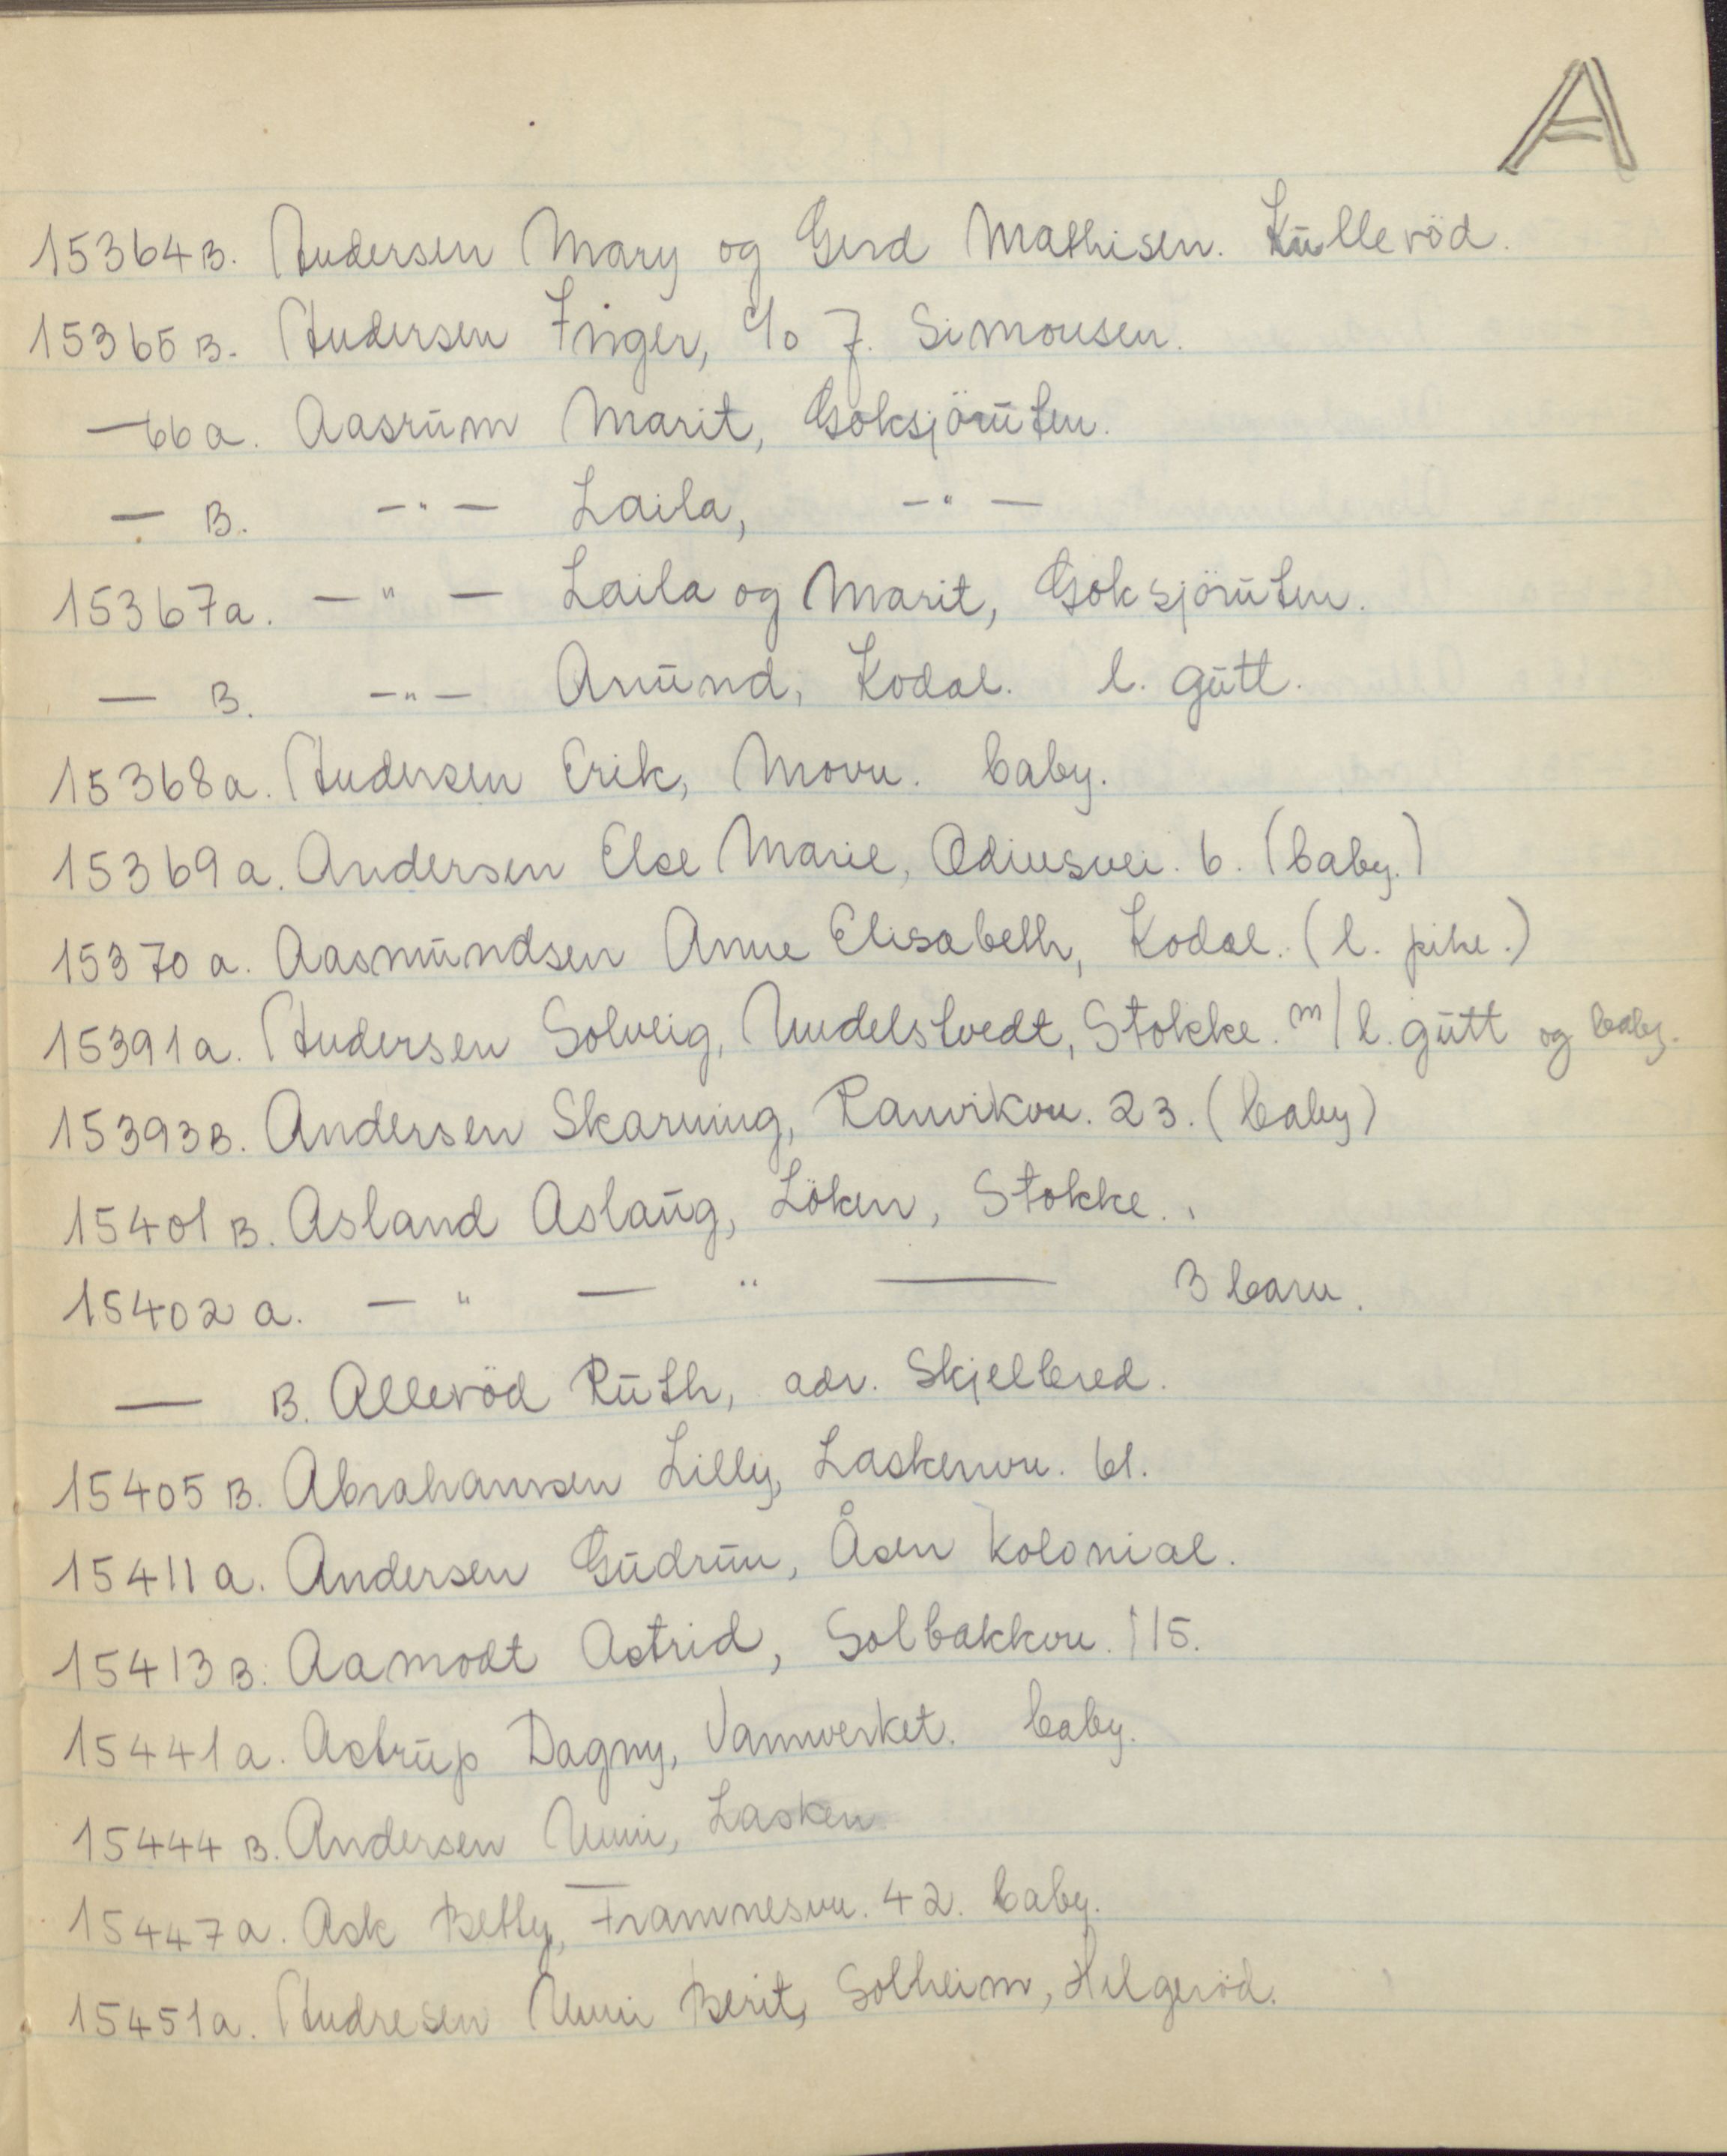 A
15364B. Andersen Mary og Gerd Mathisen. Kulleröd.
15365B. Andersen Inger, c/o J. Simonsen.
—66a. Aasrum Marit, Goksjöruten.
— B. —"— Laila, —"—
15367a. —"— Laila og Marit, Goksjöruten.
— B. —"— Amund, Kodal. l. gutt.
15368a. Andersen Erik, Movn. baby.
15369a. Andersen Else Marie, Ødinsvei. 6. (baby.)
15370a. Aasmundsen Anne Elisabeth, Kodal. (l. pike.)
15391a. Andersen Solveig, Undelstvedt, Stokke. m/l. gutt og baby.
15393B. Andersen Skarning, Ranvikvn. 23. (baby)
15401B. Asland Aslaug, Löken, Stokke.
15402a. —"— " — 3 barn.
— B. Alleröd Ruth, adr. Skjellered.
15405B. Abrahamsen Lilly, Laskenvn. 61.
15411a. Andersen Gudrun, Åsen Kolonial.
15413B. Aamodt Astrid, Solbakkvn. 115.
15441a. Astrup Dagny, Vannverket. baby.
15444B. Andersen Unni, Lasken
15447a. Ask Betty, Framnesvn. 42. baby.
15451a. Andresen Unni Berit, Solheim, Helgeröd.